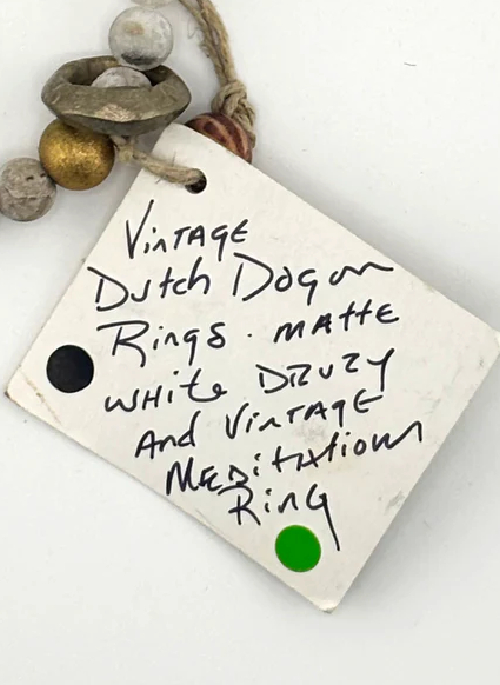 Vintage
Dutch Dogon
Rings. matte
white Druzy
And Vintage
Meditation
Ring